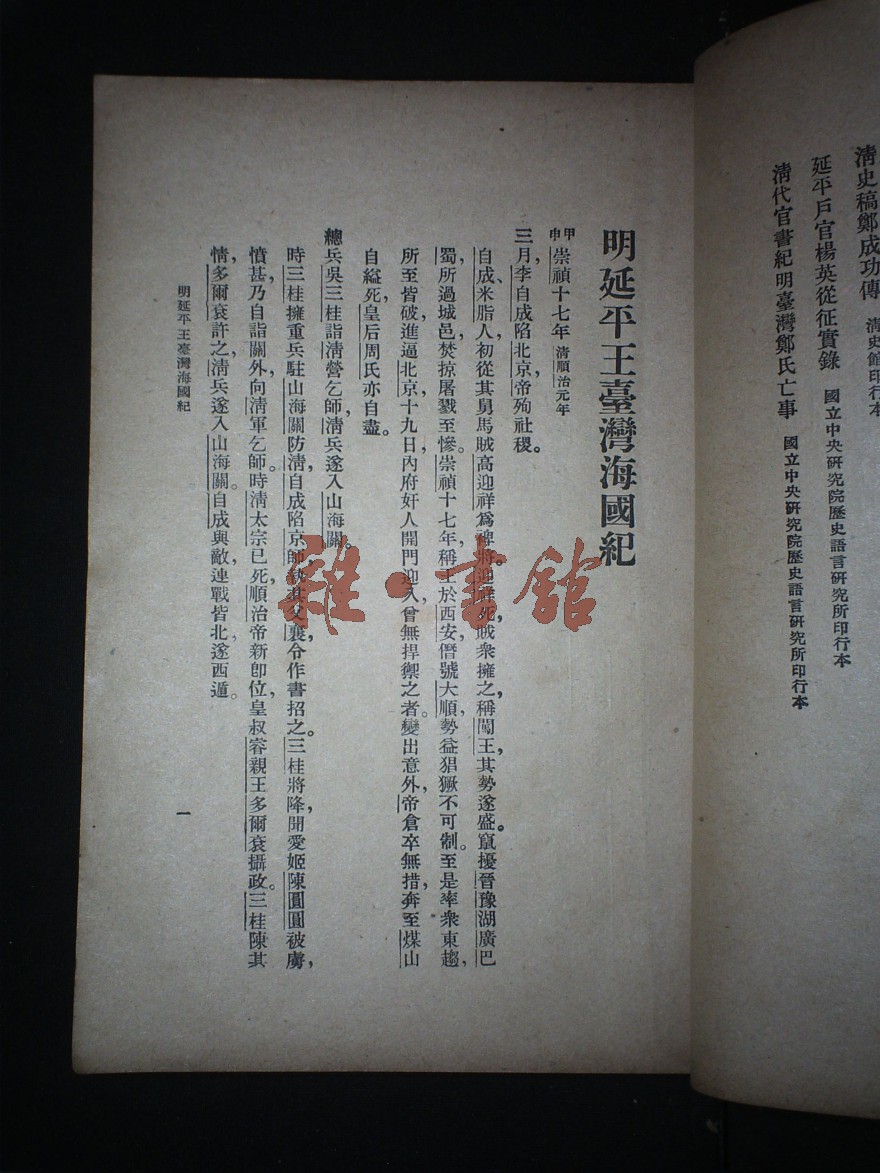 清史稿鄭成功傳 清史館印行本
延平戶官楊英從征實錄 國立中央研究院歷史語言研究所印行本
清代官書紀明臺灣鄭氏亡事 國立中央研究院歷史語言研究所印行本
明延平王臺灣海國紀
甲申崇禎十七年 清順治元年
三月，李自成陷北京，帝殉社稷。
自成，米脂人，初從其舅馬賊高迎祥爲裨將。迎祥死，賊衆擁之，稱闖王，其勢遂盛。竄擾晉豫湖廣巴
蜀，所過城邑焚掠屠戮至慘。崇禎十七年稱王於西安，僭號大順，勢益猖獗不可制。至是率衆東趨，
所至皆破，進逼北京，十九日內府奸人開門迎入，曾無捍禦之者。變出意外，帝倉卒無措，奔至煤山
自縊死，皇后周氏亦自盡。
總兵吳三桂詣淸營乞師，淸兵遂入山海關。
時三桂擁重兵駐山海關防淸，自成陷京師，執其父襄，令作書招之。三桂將降，聞愛姬陳圓圓被虜，
憤甚，乃自詣關外向淸軍乞師。時淸太宗已死，順治帝新卽位，皇叔睿親王多爾袞攝政。三桂陳其
情，多爾袞許之，淸兵遂入山海關。自成與敵連戰皆北，遂西遁。
明延平王臺灣海國紀
一
雜·書館